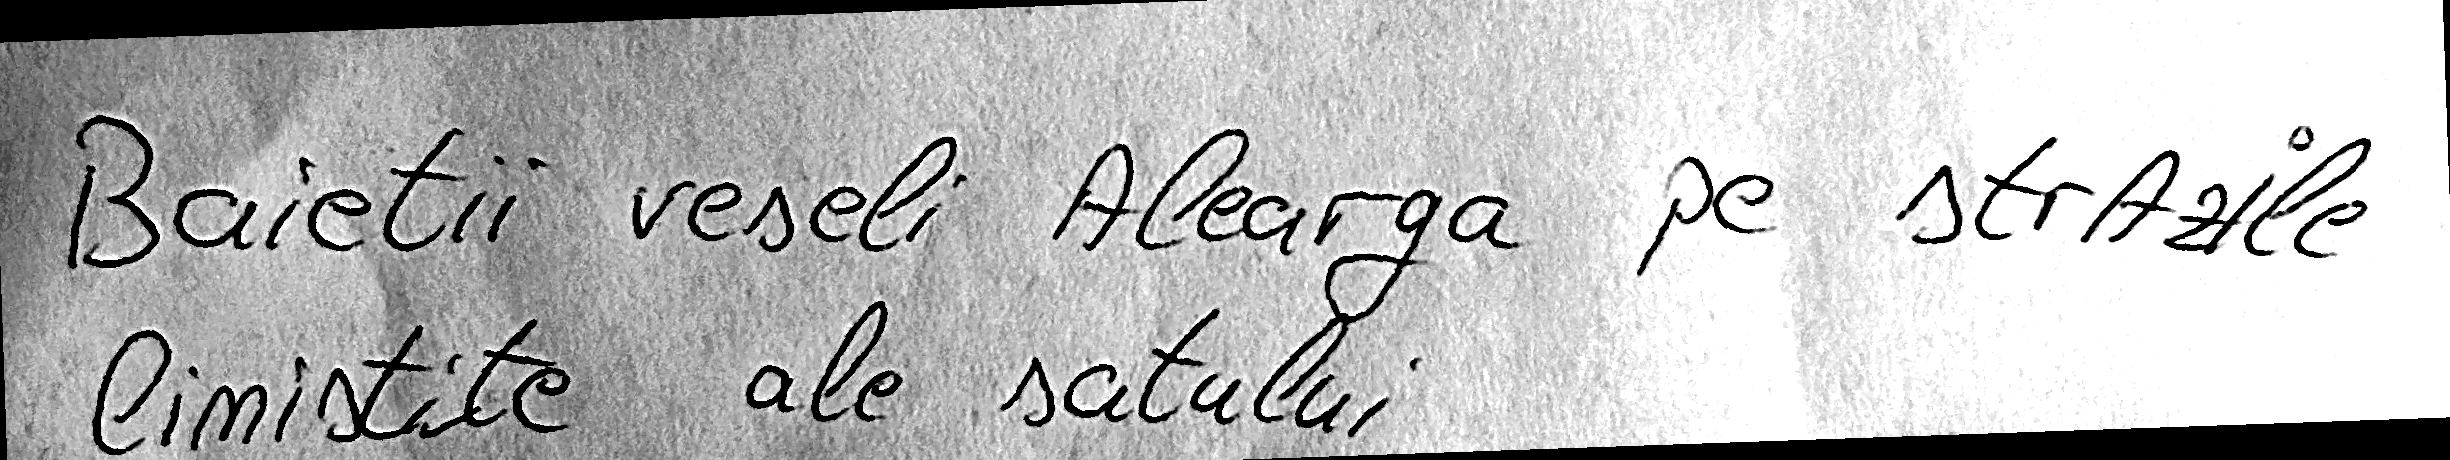 Baietii veseli Alearga pe strAzile
limistite ale satului